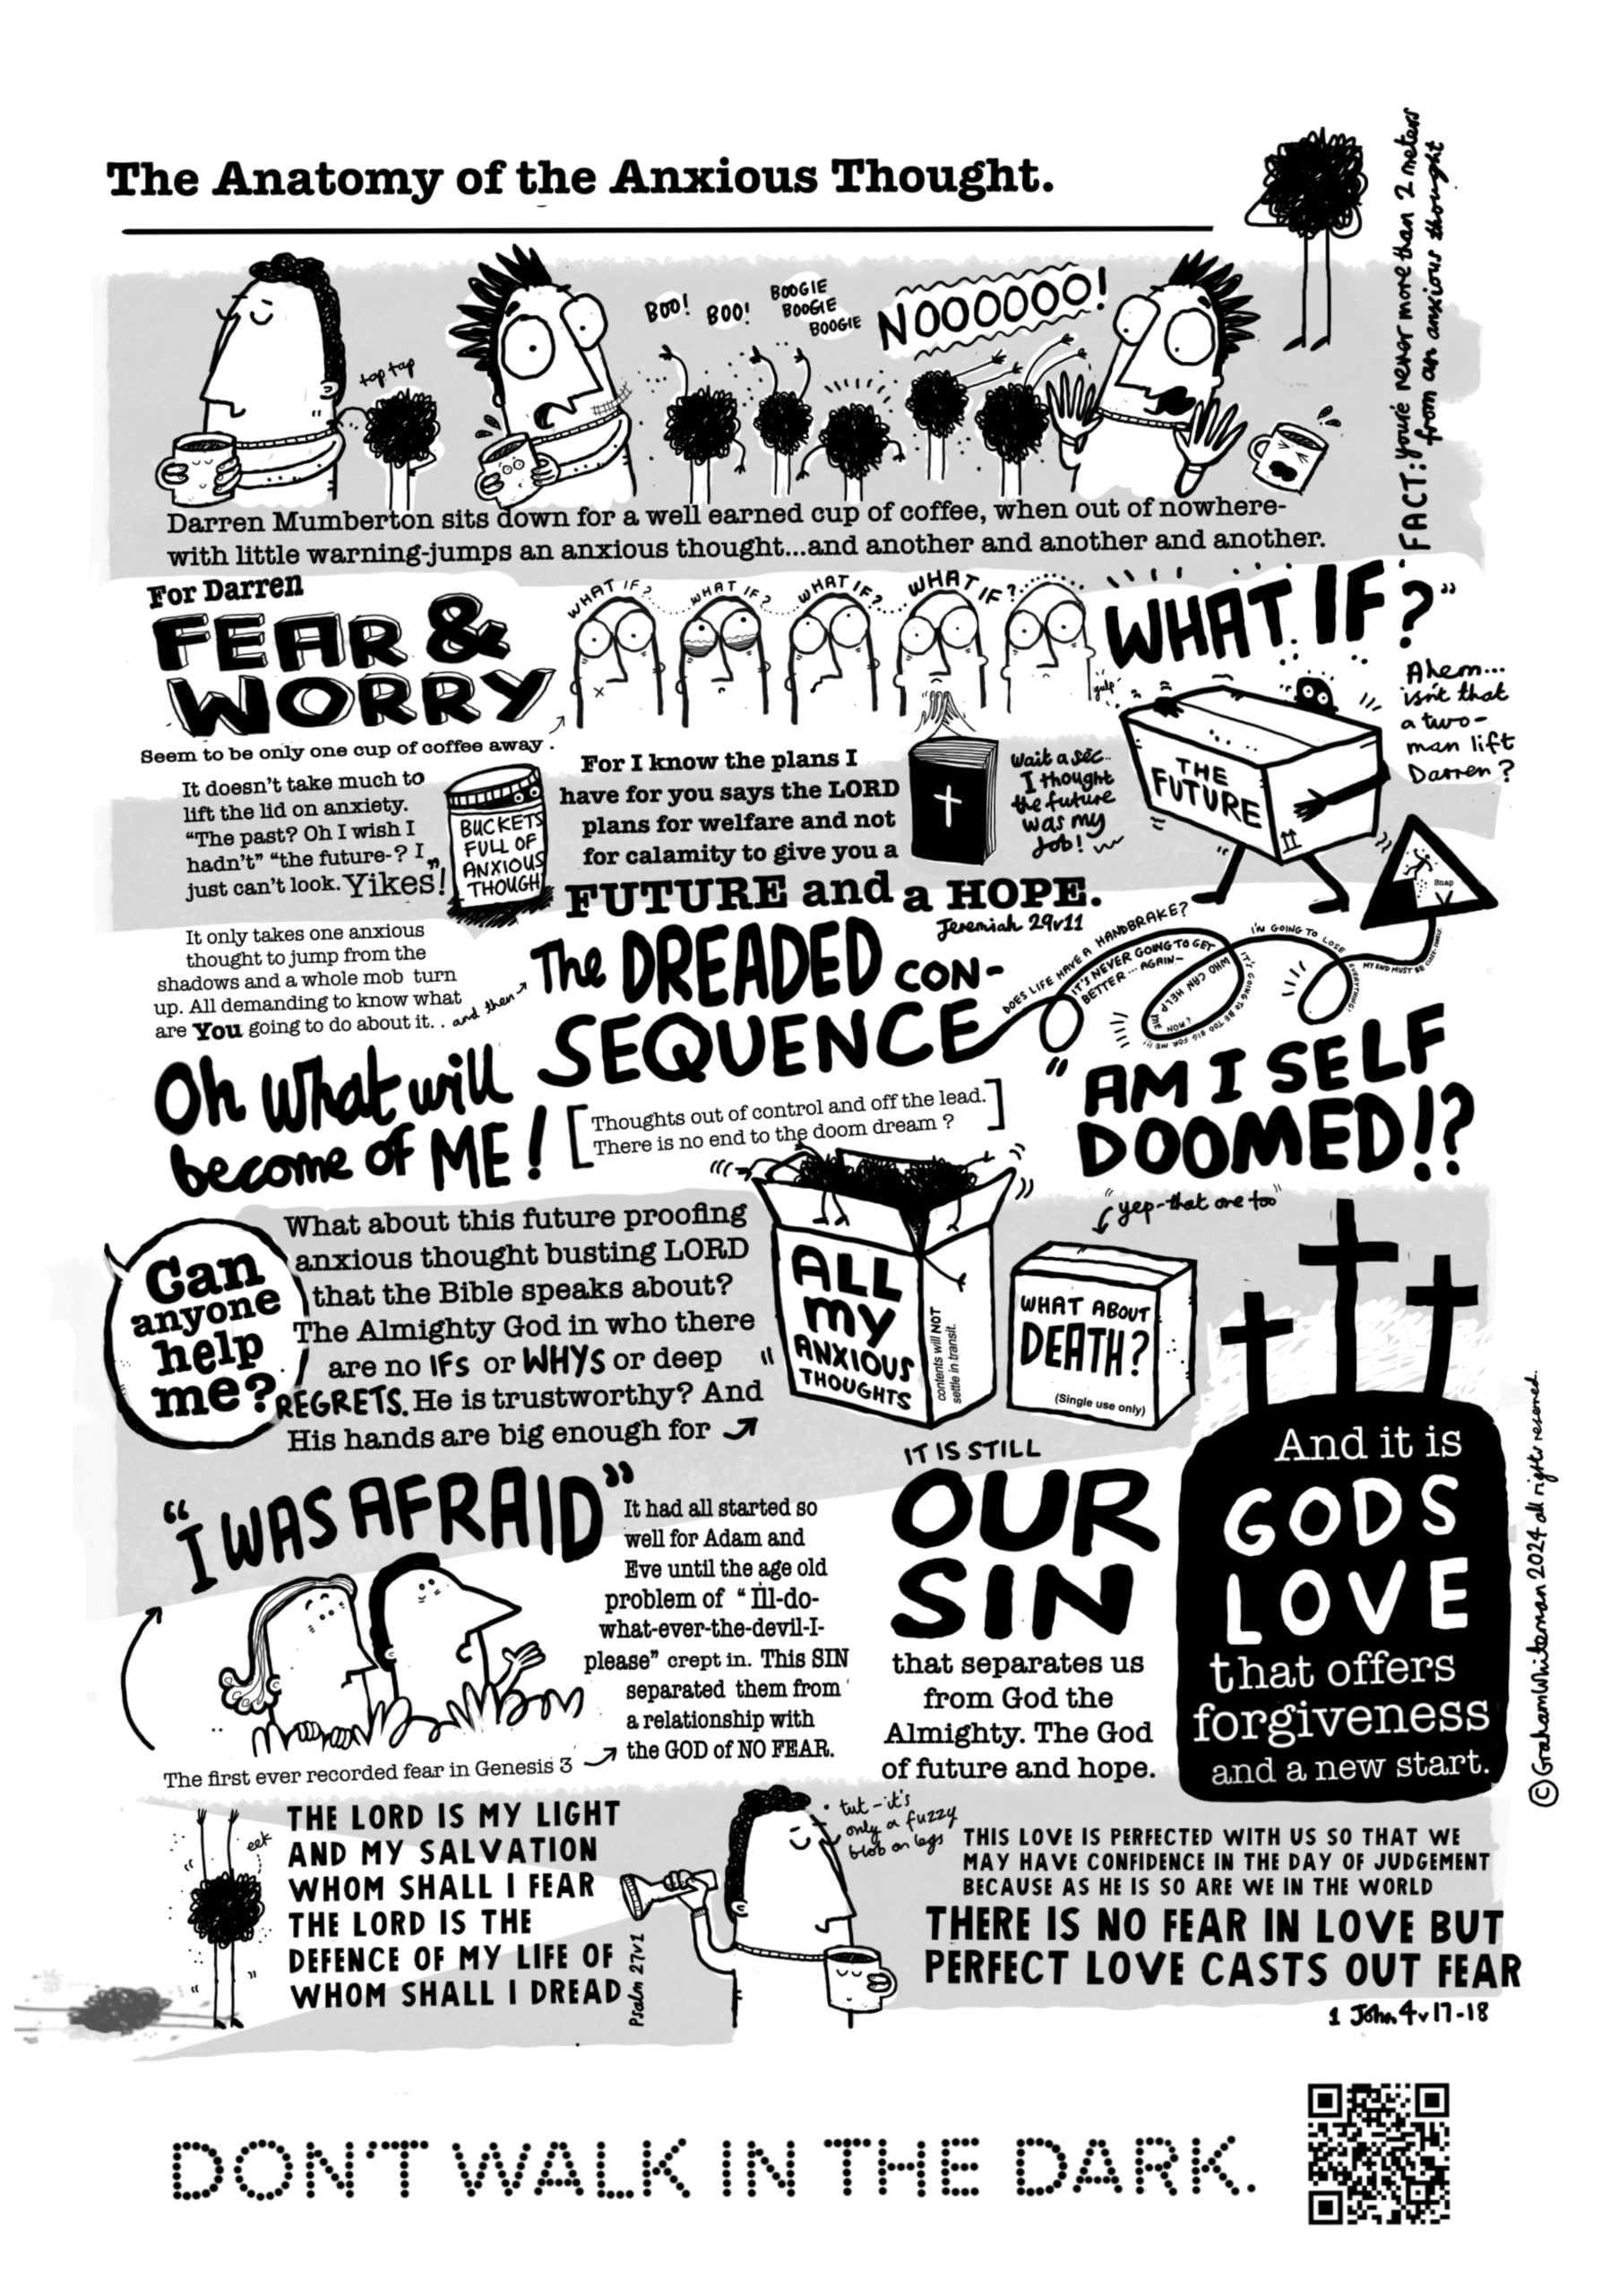 The Anatomy of the Anxious Thought.
FACT: you're never more than 2 meters
from an anxious thought
tap tap
BOO!
BOO!
BOOGIE
BOOGIE
BOOGIE
NOOOOOO!
Darren Mumberton sits down for a well earned cup of coffee, when out of nowhere-
with little warning-jumps an anxious thought...and another and another and another.
For Darren
FEAR &
WORRY
Seem to be only one cup of coffee away .
WHAT IF?
WHAT IF?
WHAT IF?
WHAT IF?
"WHAT IF?"
gulp
Ahem...
isn't that
a two-
man lift
Darren?
THE
FUTURE
It doesn't take much to
lift the lid on anxiety.
"The past? Oh I wish I
hadn't" "the future-? I
just can't look. Yikes!"
BUCKETS
FULL OF
ANXIOUS
THOUGH
For I know the plans I
have for you says the LORD
plans for welfare and not
for calamity to give you a
FUTURE and a HOPE.
Jeremiah 29v11
Wait a sec..
I thought
the future
was my
Job!
Snap
It only takes one anxious
thought to jump from the
shadows and a whole mob turn
up. All demanding to know what
are You going to do about it. . and then
The DREADED CON-
SEQUENCE
DOES LIFE HAVE A HANDBRAKE?
IT'S NEVER GOING TO GET
BETTER ... AGAIN-
WHO CAN HELP
ME NOW?
IT'S GOING TO BE TOO BIG FOR ME!!
I'M GOING TO LOSE
EVERYTHING!
MY END MUST BE
Oh what will
become of ME!
[Thoughts out of control and off the lead.
There is no end to the doom dream ?]
"AM I SELF
DOOMED!?
"yep-that one too"
Can
anyone
help
me?
What about this future proofing
anxious thought busting LORD
that the Bible speaks about?
The Almighty God in who there
are no IFs or WHYS or deep
REGRETS. He is trustworthy? And
His hands are big enough for
ALL
My
ANXIOUS
THOUGHTS
contents will NOT
settle in transit.
WHAT ABOUT
DEATH?
(Single use only)
"I WAS AFRAID"
It had all started so
well for Adam and
Eve until the age old
problem of " I'll-do-
what-ever-the-devil-I-
please" crept in. This SIN
separated them from
a relationship with
the GOD of NO FEAR.
The first ever recorded fear in Genesis 3
IT IS STILL
OUR
SIN
that separates us
from God the
Almighty. The God
of future and hope.
And it is
GODS
LOVE
that offers
forgiveness
and a new start.
©GrahamWhiteman 2024 all rights reserved.
eek
THE LORD IS MY LIGHT
AND MY SALVATION
WHOM SHALL I FEAR
THE LORD IS THE
DEFENCE OF MY LIFE OF
WHOM SHALL I DREAD
Psalm 27v1
tut-it's
only a fuzzy
blob on legs
THIS LOVE IS PERFECTED WITH US SO THAT WE
MAY HAVE CONFIDENCE IN THE DAY OF JUDGEMENT
BECAUSE AS HE IS SO ARE WE IN THE WORLD
THERE IS NO FEAR IN LOVE BUT
PERFECT LOVE CASTS OUT FEAR
1 John 4v17-18
DON'T WALK IN THE DARK.